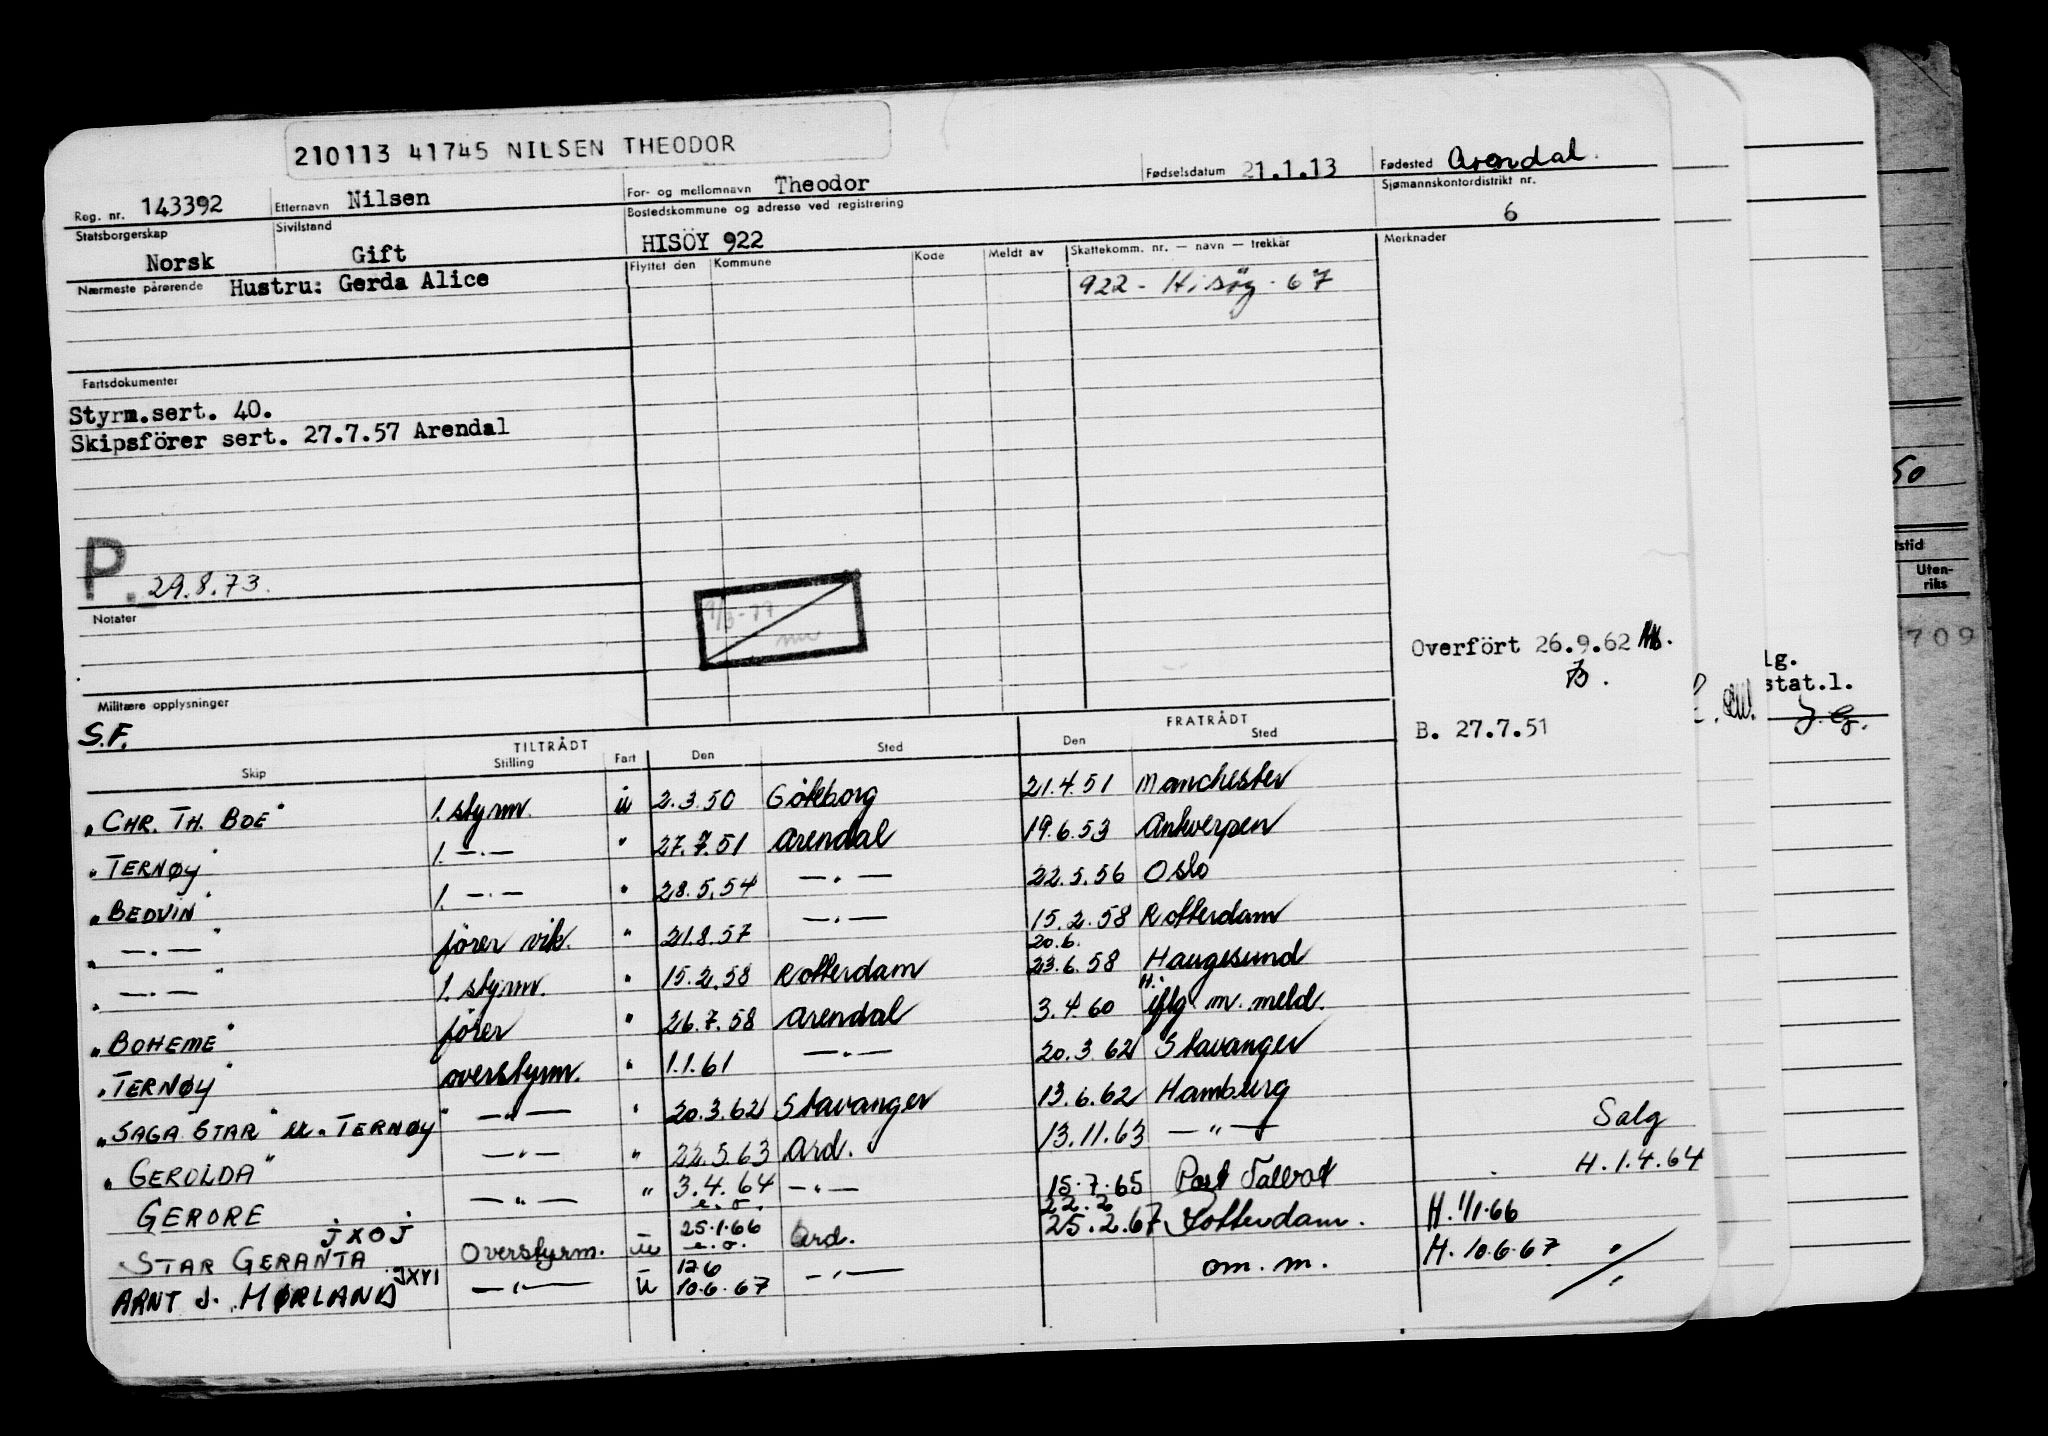 210113 41745 NILSEN THEODOR
Reg. nr. 143392 Etternavn Nilsen For- og mellomnavn Theodor Fødselsdatum 21.1.13 Fødested Arendal.
Statsborgerskap Norsk Sivilstand Gift Bostedskommune og adresse ved registrering HISÖY 922 Sjømannskontordistrikt nr. 6
Nærmeste pårørende Hustru: Gerda Alice Flyttet den Kommune Kode Meldt av Skattekomm. nr. — navn — trekkår Merknader
922 - Hisöy - 67
Fartsdokumenter
Styrm.sert. 40.
Skipsförer sert. 27.7.57 Arendal
50
tstid
Uten-
riks
P. 29.8.73.
Notater
709
Overfört 26.9.62
B.
lg.
stat.l.
Militære opplysninger
S.F.
B. 27.7.51
J.G.
TILTRÅDT FRATRÅDT
Skip Stilling Fart Den Sted Den Sted
"CHR. TH. BOE" 1. styrm. u 2.3.50 Göteborg 21.4.51 Manchester
"TERNØY" 1. —.— " 27.7.51 Arendal 19.6.53 Antwerpen
"BEDVIN" 1. —.— " 28.5.54 —.— 22.5.56 Oslo
" —.— " fører vik. " 21.8.57 —.— 15.2.58 Rotterdam
" —.— " 1. styrm. " 15.2.58 Rotterdam 20.6. 23.6.58 Haugesund
"BOHEME" fører " 26.7.58 Arendal 3.4.60 H. iflg m. meld.
"TERNØY" overstyrm. " 1.1.61 —.— 20.3.62 Stavanger
"SAGA STAR" ex "TERNØY" —"— " 20.3.62 Stavanger 13.6.62 Hamburg
"GEROLDA" —"— " 22.5.63 Ard. 13.11.63 —"— Salg
GERORE —"— " 3.4.64 e.o. —"— 15.7.65 Port Talbot H. 1.4.64
STAR GERANTA JXOJ Overstyrm. u 25.1.66 e.o. Ard. 22.2 25.2.67 Rotterdam. H. 1/1.66
ARNT J. MØRLAND JXYI —"— u 12.6 10.6.67 —"— om. m. H. 10.6.67 "